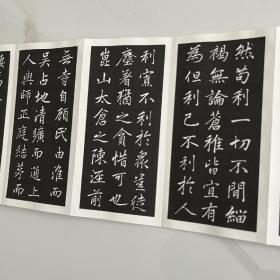 然苟利一切不間緇
褐無論蒼稚皆宜有
為但利己不利於人
利宣不利於衆豈徒
塵著猶之貪惜可也
崑山太倉之陳涇前
無寺自顧民由淮而
吳占地清曠而邇上
人與師正庭結茅而